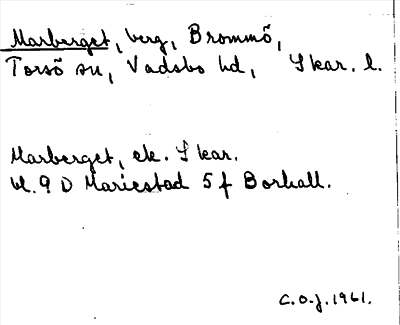 Marberget, berg, Brommö,
Torsö sn, Vadsbo hd, Skar. l.
Marberget, ek. Skar.
bl. 9 D Mariestad 5 f Borkall.
C.O.J. 1961.